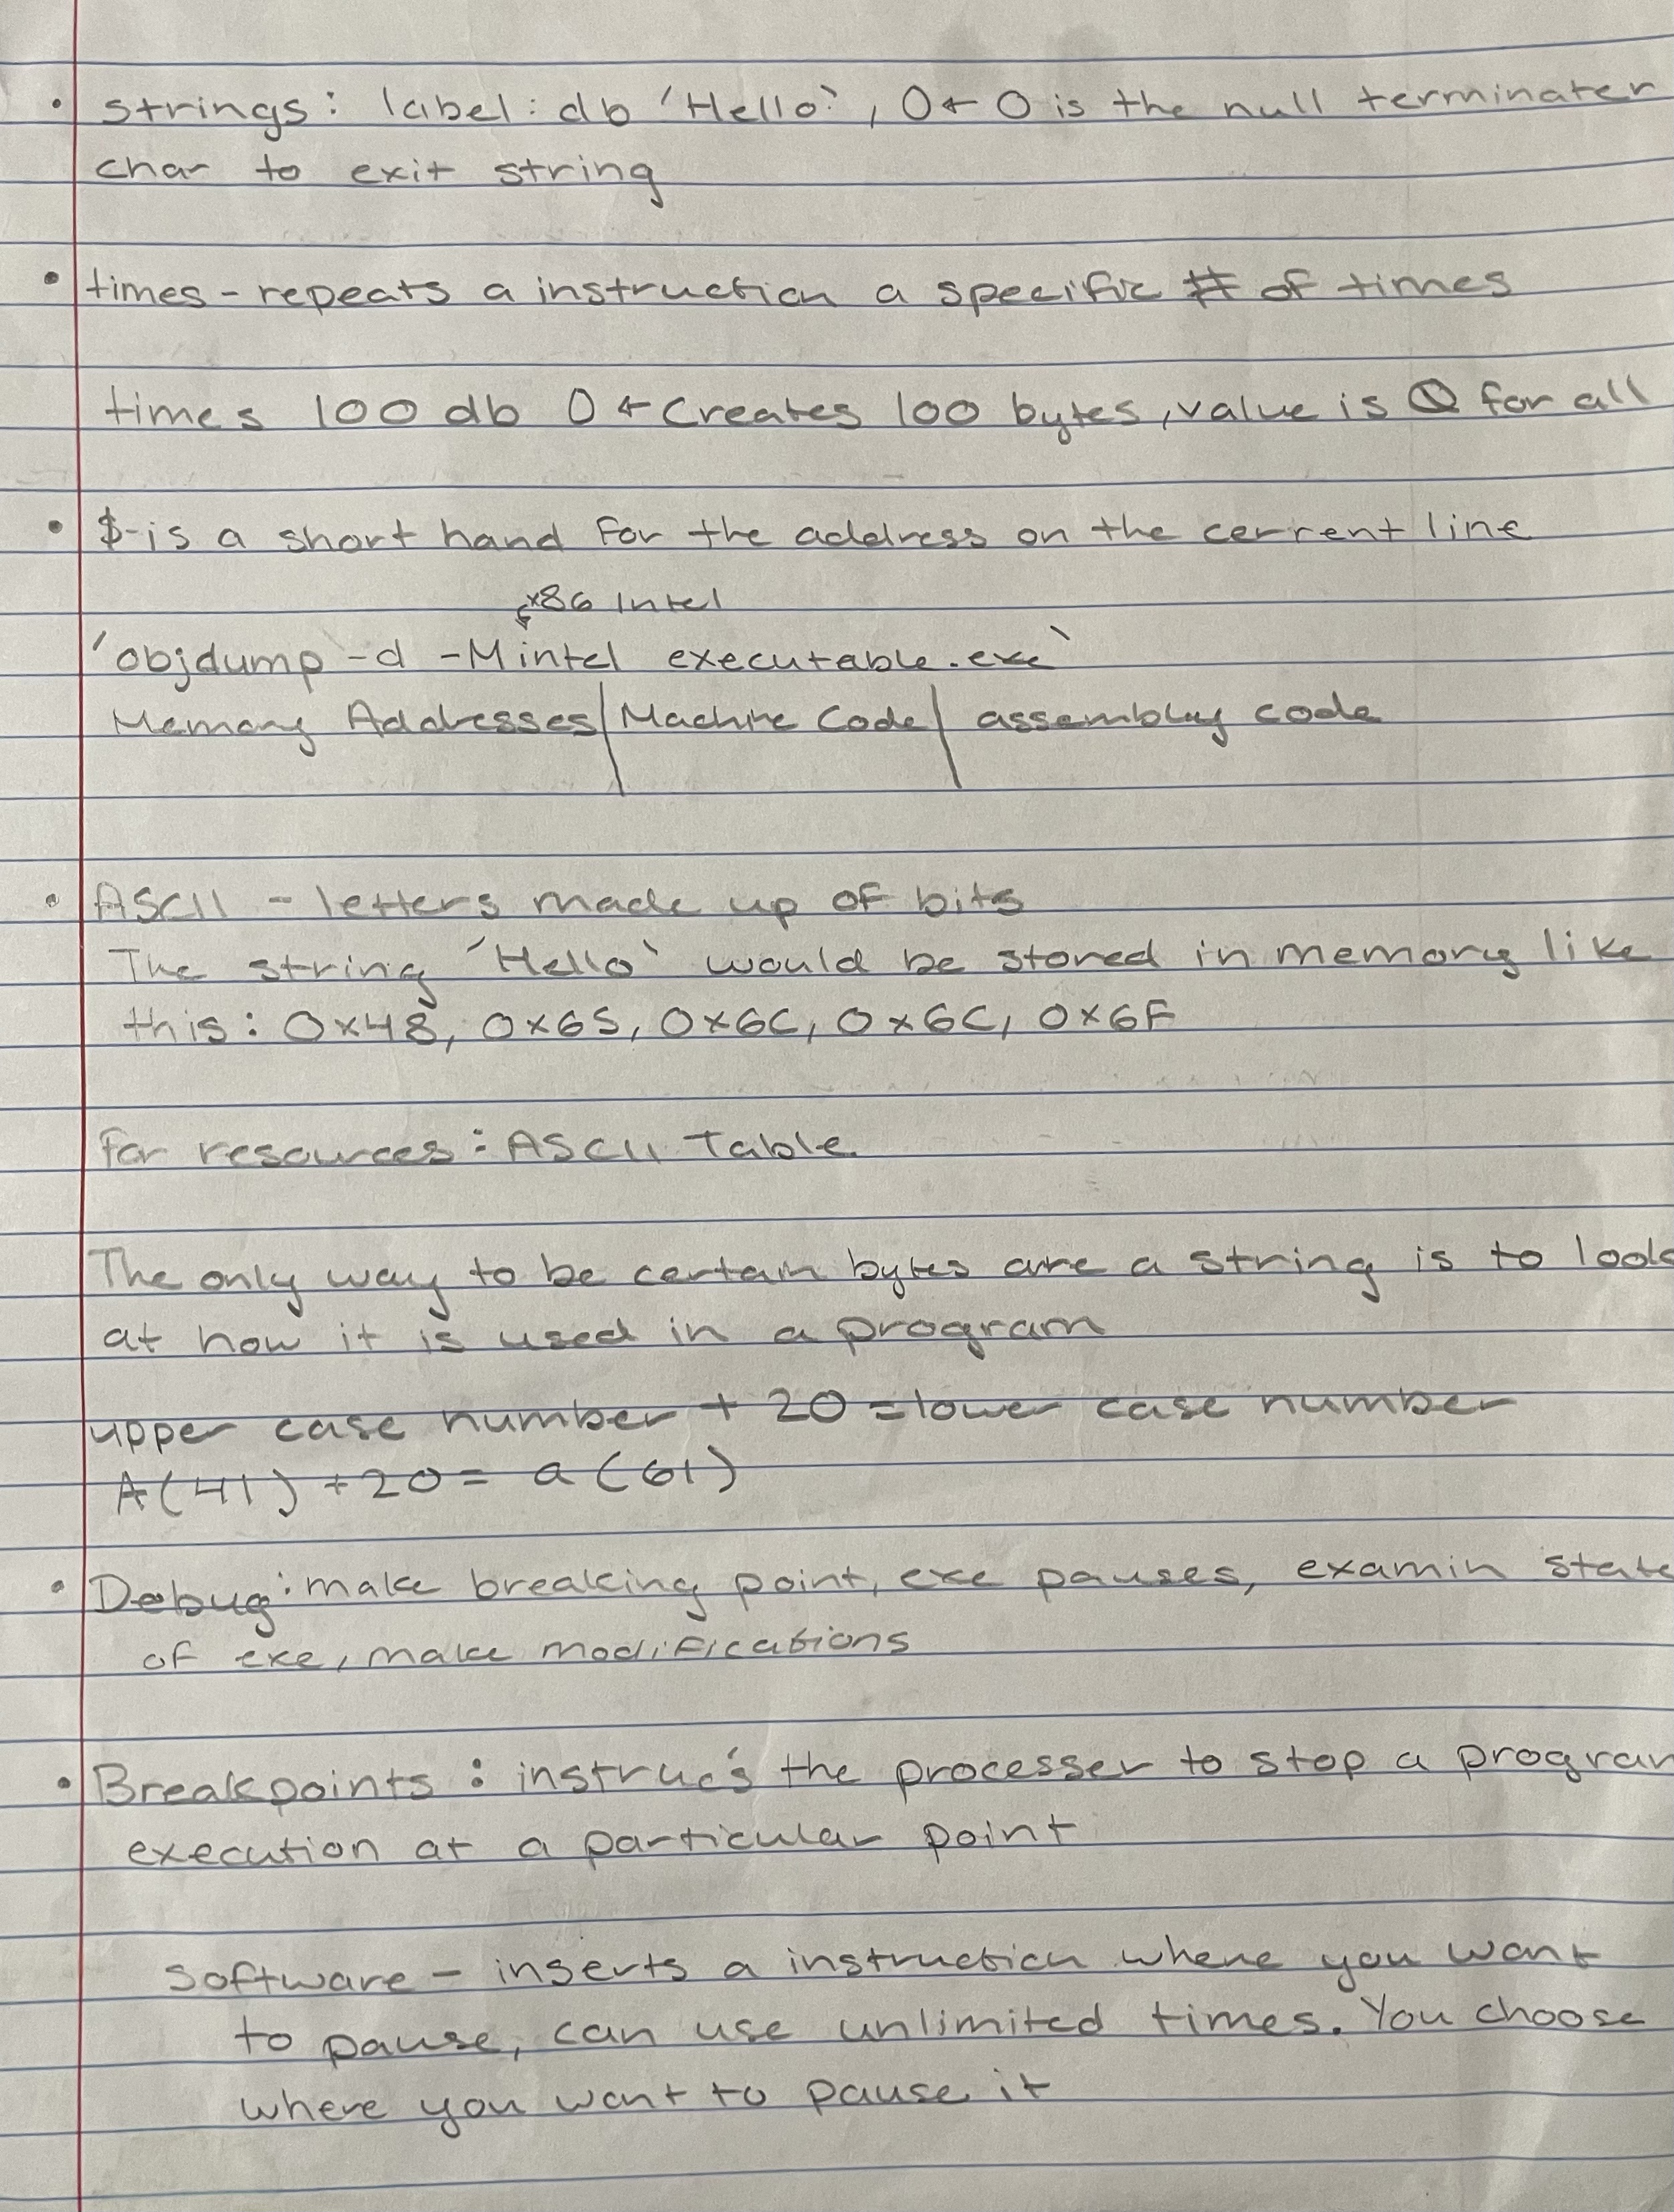 • strings: label: db 'Hello', 0 ← 0 is the null terminater
char to exit string
• times - repeats a instruction a specific # of times
times 100 db 0 ← Creates 100 bytes, value is 0 for all
• $ - is a short hand for the address on the cerrent line
x86 Intel
'objdump -d -M intel executable.exe`
Memory Addresses | Machine Code | assembly code
• ASCII - letters made up of bits
The string 'Hello` would be stored in memory like
this: 0x48, 0x65, 0x6C, 0x6C, 0x6F
for resources: ASCII Table
The only way to be certain bytes are a string is to look
at how it is used in a program
upper case number + 20 = lower case number
A(41) + 20 = a (61)
• Debug: make breaking point, exe pauses, examin state
of exe, make modifications
• Breakpoints: instruc's the processer to stop a program
execution at a particular point
Software - inserts a instruction where you want
to pause, can use unlimited times. You choose
where you want to pause it